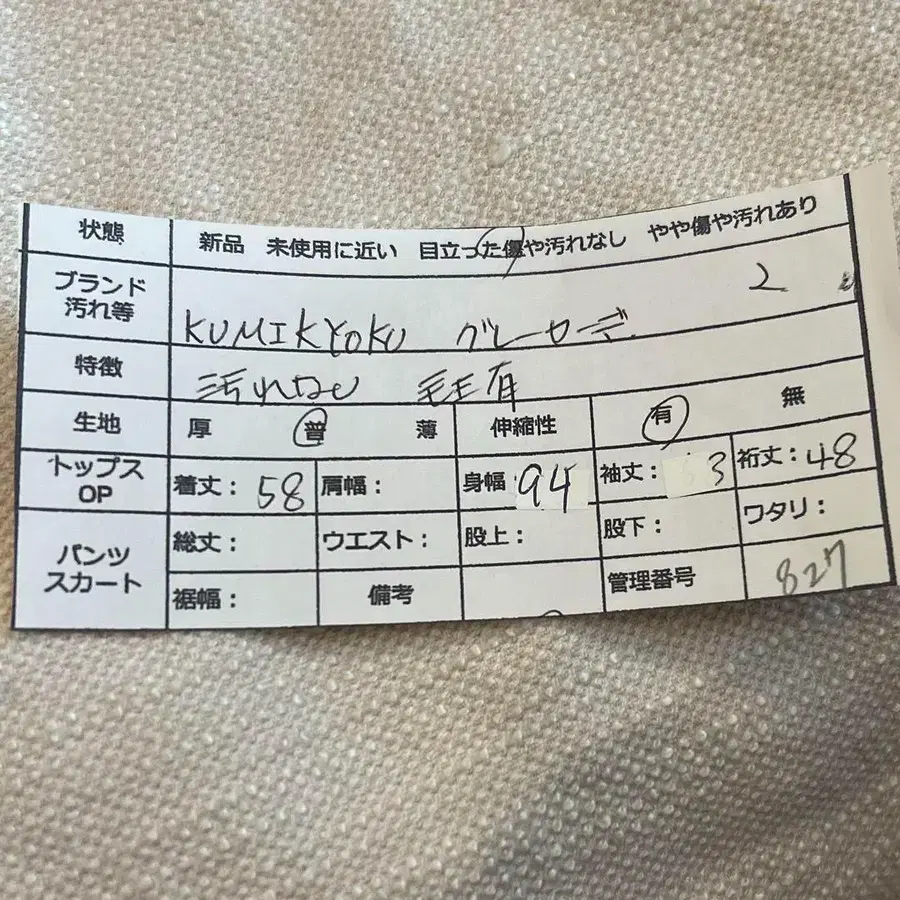 状態 新品 未使用に近い 目立った傷や汚れなし やや傷や汚れあり
ブランド 汚れ等 KUMIKYOKU グレーカーデ 2
特徴 汚れなし 毛玉有
生地 厚 普 薄 伸縮性 有 無
トップス OP 着丈: 58 肩幅: 身幅: 94 袖丈: 3 裄丈: 48
パンツ スカート 総丈: ウエスト: 股上: 股下: ワタリ:
裾幅: 備考 管理番号 827